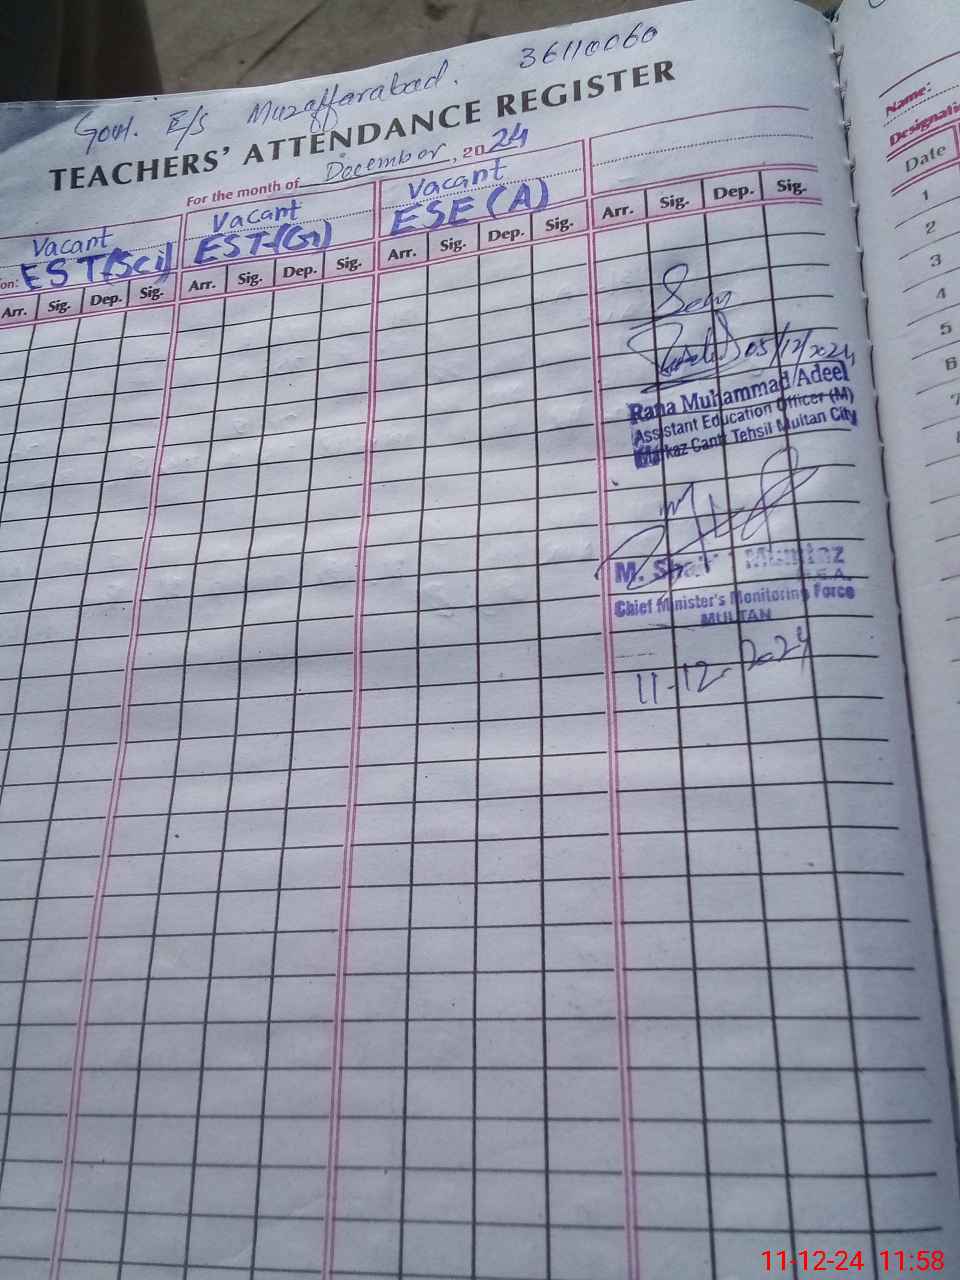 Govt. E/S Muzaffarabad. 36110060
TEACHERS' ATTENDANCE REGISTER
For the month of December, 2024
Vacant Vacant Vacant
on: EST(Sci) EST-(G) ESE (A)
Arr. Sig. Dep. Sig. Arr. Sig. Dep. Sig. Arr. Sig. Dep. Sig. Arr. Sig. Dep. Sig.
Seen
05/12/2024
Rana Muhammad Adeel
Assistant Education Officer (M)
Markaz Cantt Tehsil Multan City
M. Mumtaz
Chief Minister's Monitoring Force
MULTAN
11-12-2024
Name:
Designati
Date
1
2
3
4
5
6
7
8
11-12-24 11:58